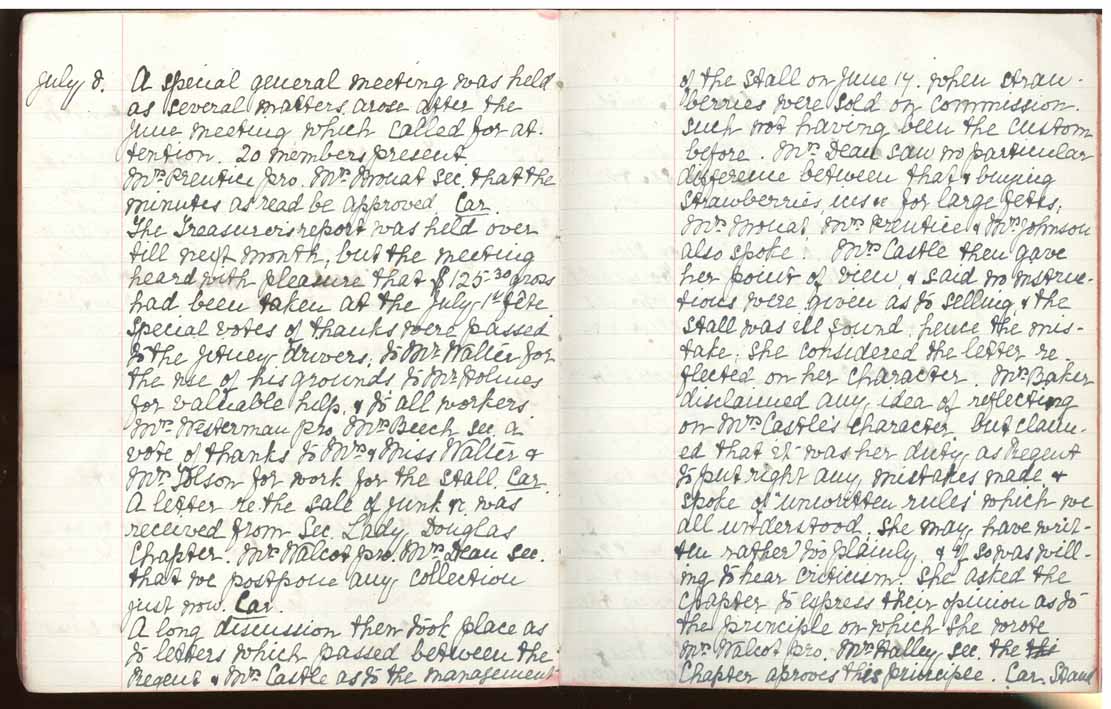 July 8. A special general meeting was held
as several matters arose after the
June meeting which called for at-
tention. 20 members present.
Mrs Prentice pro. Mrs Mouat sec. that the
minutes as read be approved. Car.
The Treasurer's report was held over
till next month, but the meeting
heard with pleasure that $125.30 gross
had been taken at the July 1st fete
Special votes of thanks were passed
to the jitney drivers, to Mr Walter for
the use of his grounds to Mr Holmes
for valuable help, & to all workers.
Mrs Westerman pro. Mrs Beech sec. a
vote of thanks to Mrs & Miss Walter &
Mrs Tolson for work for the stall. Car.
A letter re the sale of junk &c was
received from Sec. Lady Douglas
Chapter. Mrs Walcot pro. Mrs Dean sec.
that we postpone any collection
just now. Car.
A long discussion then took place as
to letters which passed between the
Regent & Mrs Castle as to the management
of the stall on June 17. when straw-
berries were sold on commission.
Such not having been the custom
before. Mrs Dean saw no particular
difference between that & buying
strawberries, ices &c for large fetes;
Mrs Mouat Mrs Prentice & Mrs Johnson
also spoke. Mrs Castle then gave
her point of view, & said no instruc-
tions were given as to selling & the
stall was ill found, hence the mis-
take; she considered the letter re-
flected on her character. Mrs Baker
disclaimed any idea of reflecting
on Mrs Castle's character but claim-
ed that it was her duty as Regent
to put right any mistakes made &
spoke of "unwritten rules" which we
all understood. She may have writ-
ten rather too plainly, & if so was will-
ing to hear criticism. She asked the
Chapter to express their opinion as to
the principle on which she wrote
Mrs Walcot pro. Mrs Halley sec. the this
Chapter aproves this principle. Car. Stand